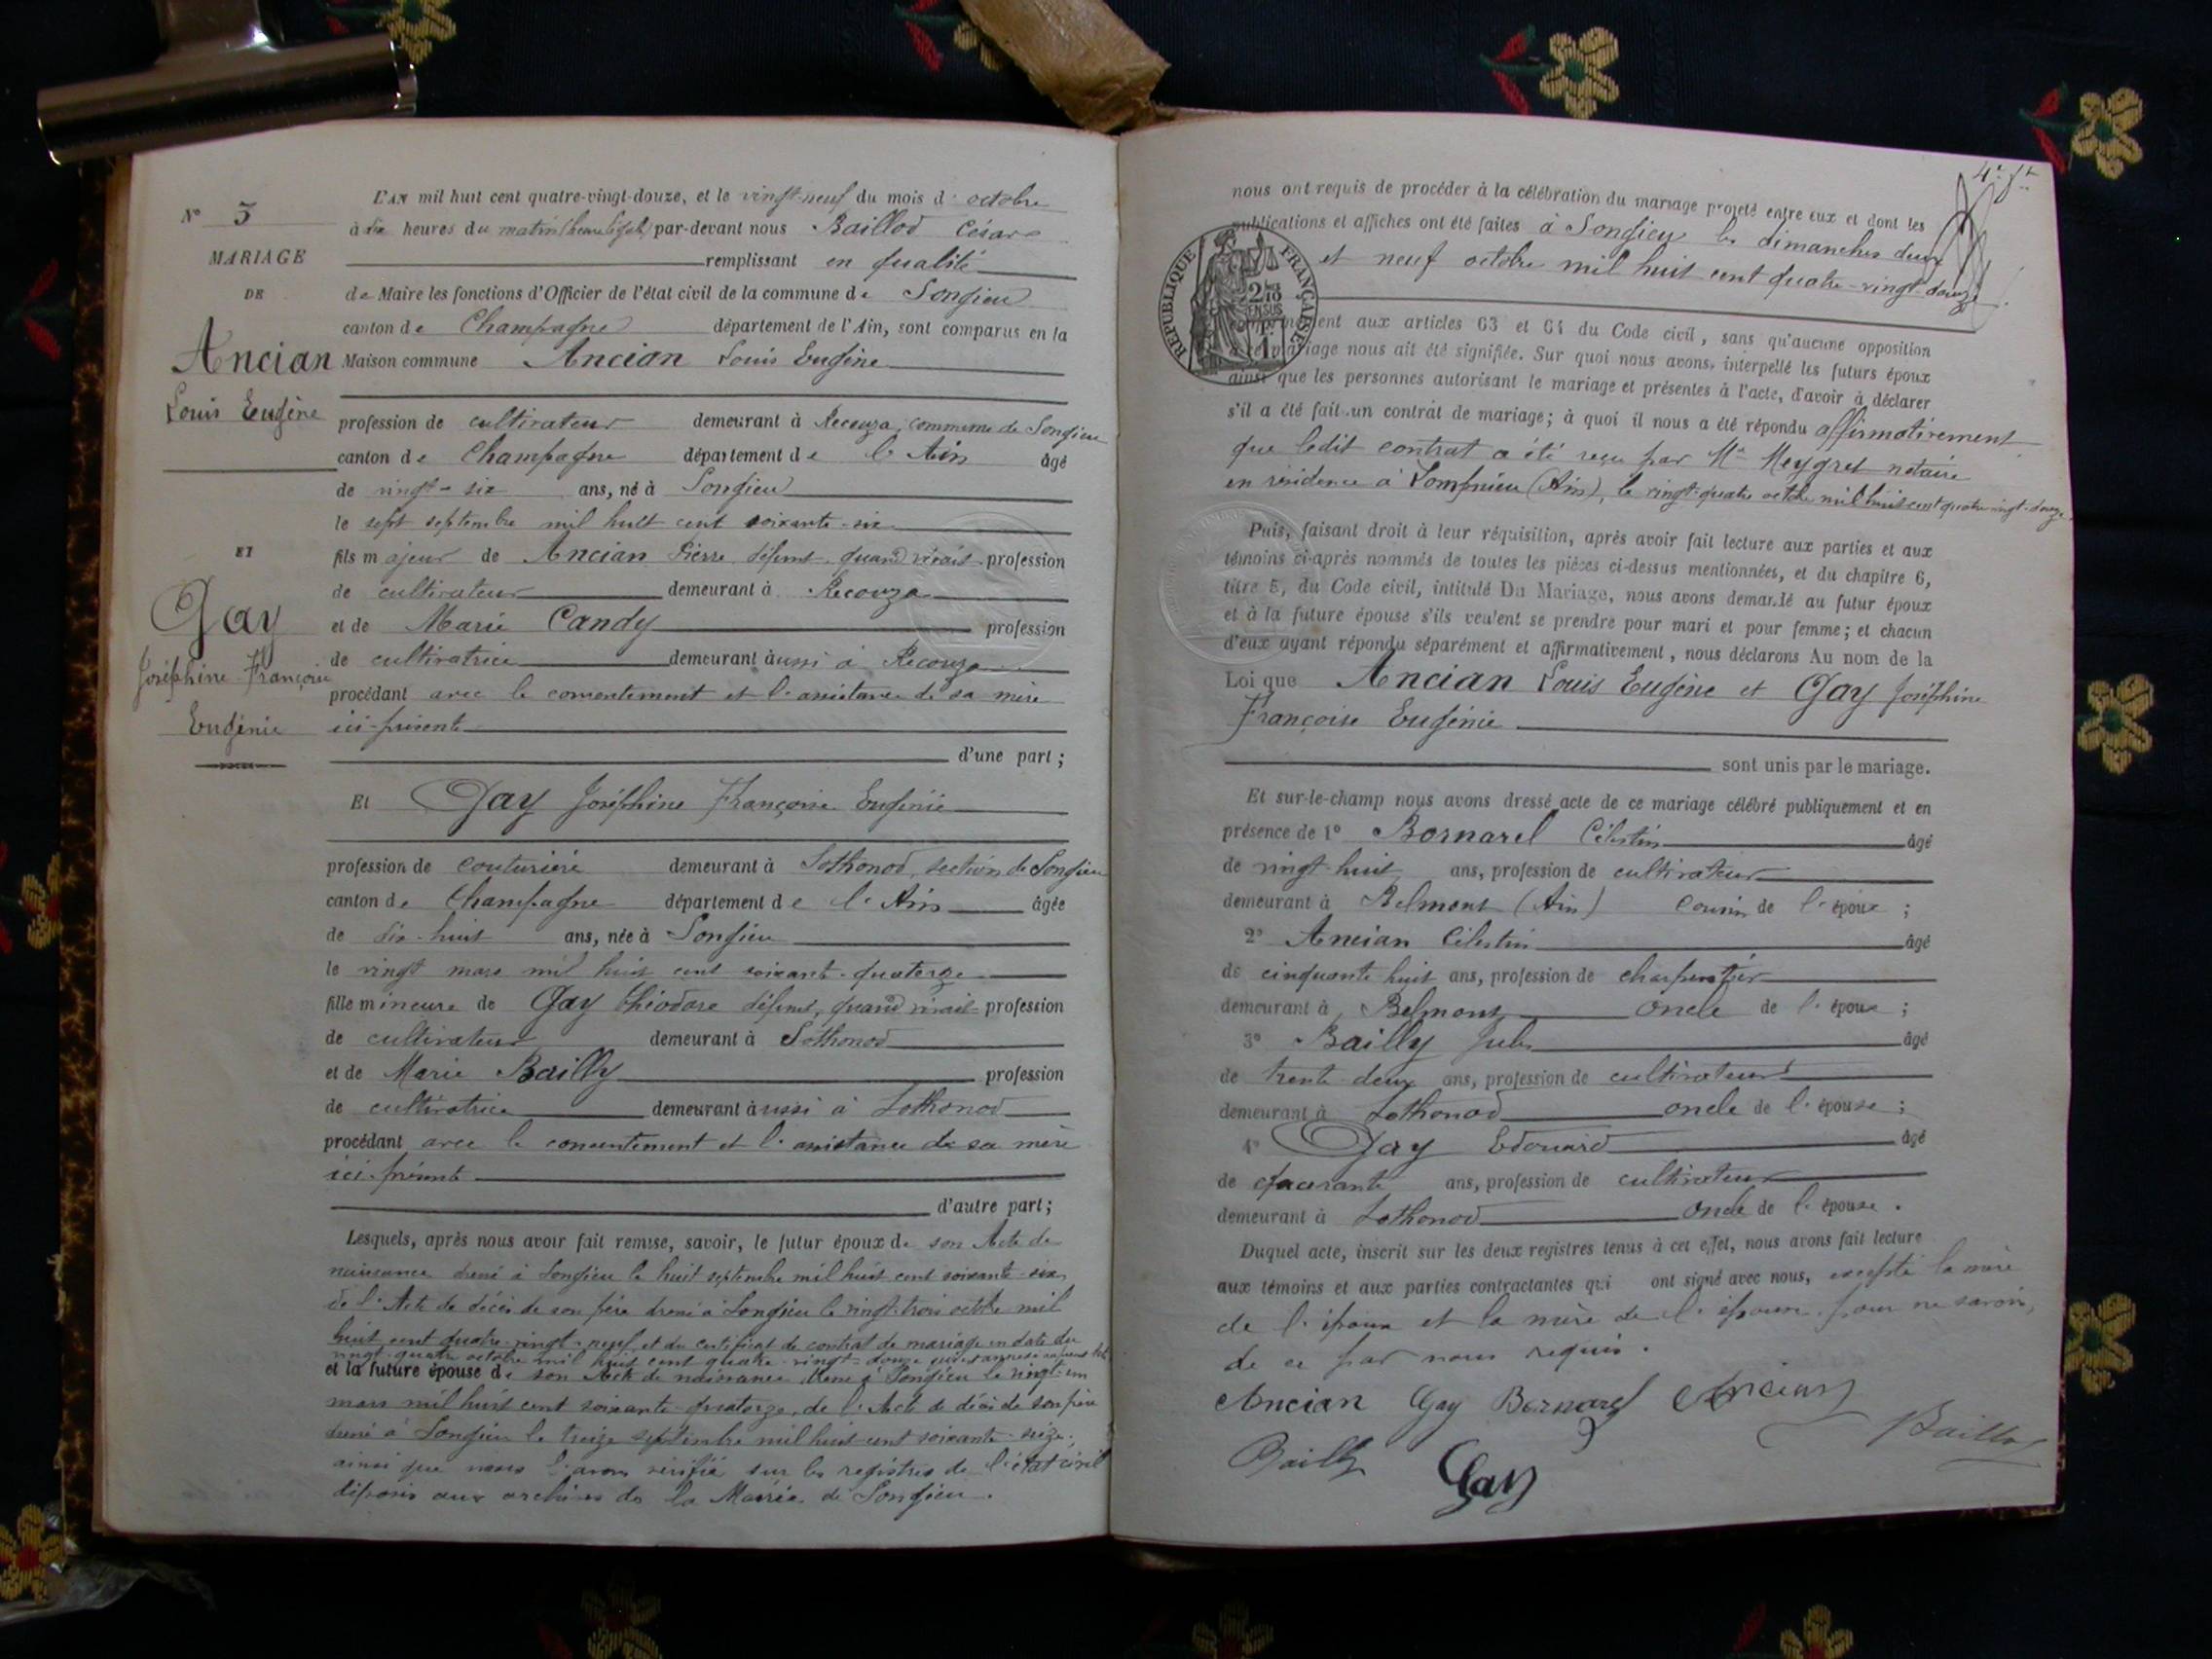 N° 3
MARIAGE
DE
Ancian
Louis Eugène
ET
Gay
Joséphine Françoise
Eugénie
L'AN mil huit cent quatre-vingt-douze, et le vingt-neuf du mois d' octobre
à dix heures du matin (heure légale) par-devant nous Baillod César
remplissant en qualité
de Maire les fonctions d'Officier de l'état civil de la commune de Songieu
canton de Champagne département de l'Ain, sont comparus en la
Maison commune Ancian Louis Eugène
profession de cultivateur demeurant à Recouza, commune de Songieu
canton de Champagne département de l'Ain âgé
de vingt-six ans, né à Songieu
le sept septembre mil huit cent soixante-six
fils majeur de Ancian Pierre, défunt, quand vivait profession
de cultivateur demeurant à Recouza
et de Marie Candy profession
de cultivatrice demeurant aussi à Recouza
procédant avec le consentement et l'assistance de sa mère
ici-présente
d'une part ;
Et Gay Joséphine Françoise Eugénie
profession de couturière demeurant à Sothonod, section de Songieu
canton de Champagne département de l'Ain âgée
de dix-huit ans, née à Songieu
le vingt mars mil huit cent soixante-quatorze
fille mineure de Gay théodore défunt, quand vivait profession
de cultivateur demeurant à Sothonod
et de Marie Bailly profession
de cultivatrice demeurant aussi à Sothonod
procédant avec le consentement et l'assistance de sa mère
ici-présente
d'autre part ;
Lesquels, après nous avoir fait remise, savoir, le futur époux de son Acte de
naissance dressé à Songieu le huit septembre mil huit cent soixante-six,
de l'Acte de décès de son père dressé à Songieu le vingt-trois octobre mil
huit cent quatre-vingt-neuf, et du certificat de contrat de mariage en date du
vingt-quatre octobre mil huit cent quatre-vingt-douze
et la future épouse de son Acte de naissance dressé à Songieu le vingt-un
mars mil huit cent soixante-quatorze, de l'Acte de décès de son père
dressé à Songieu le treize septembre mil huit cent soixante-seize ;
ainsi que nous l'avons vérifié sur les registres de l'état civil
déposés aux archives de la Mairie de Songieu.
nous ont requis de procéder à la célébration du mariage projeté entre eux et dont les
publications et affiches ont été faites à Songieu les dimanches deux
et neuf octobre mil huit cent quatre-vingt-douze
RÉPUBLIQUE FRANÇAISE
conformément aux articles 63 et 64 du Code civil, sans qu'aucune opposition
à ce mariage nous ait été signifiée. Sur quoi nous avons, interpellé les futurs époux
ainsi que les personnes autorisant le mariage et présentes à l'acte, d'avoir à déclarer
s'il a été fait un contrat de mariage ; à quoi il nous a été répondu affirmativement
que ledit contrat a été reçu par Me Meygret notaire
en résidence à Lompnieu (Ain), le vingt-quatre octobre mil huit cent quatre-vingt-douze.
Puis, faisant droit à leur réquisition, après avoir fait lecture aux parties et aux
témoins ci-après nommés de toutes les pièces ci-dessus mentionnées, et du chapitre 6,
titre 5, du Code civil, intitulé Du Mariage, nous avons demandé au futur époux
et à la future épouse s'ils veulent se prendre pour mari et pour femme ; et chacun
d'eux ayant répondu séparément et affirmativement, nous déclarons Au nom de la
Loi que Ancian Louis Eugène et Gay Joséphine
Françoise Eugénie
sont unis par le mariage.
Et sur-le-champ nous avons dressé acte de ce mariage célébré publiquement et en
présence de 1° Bornarel Célestin âgé
de vingt-huit ans, profession de cultivateur
demeurant à Belmont (Ain) cousin de l'époux ;
2° Ancian Célestin âgé
de cinquante huit ans, profession de charpentier
demeurant à Belmont oncle de l'époux ;
3° Bailly Jules âgé
de trente-deux ans, profession de cultivateur
demeurant à Sothonod oncle de l'épouse ;
4° Gay Edouard âgé
de quarante ans, profession de cultivateur
demeurant à Sothonod oncle de l'épouse.
Duquel acte, inscrit sur les deux registres tenus à cet effet, nous avons fait lecture
aux témoins et aux parties contractantes qui ont signé avec nous, excepté la mère
de l'époux et la mère de l'épouse, pour ne savoir,
de ce par nous requis.
Ancian Gay Bornarel Ancian
Baillod
Bailly Gay